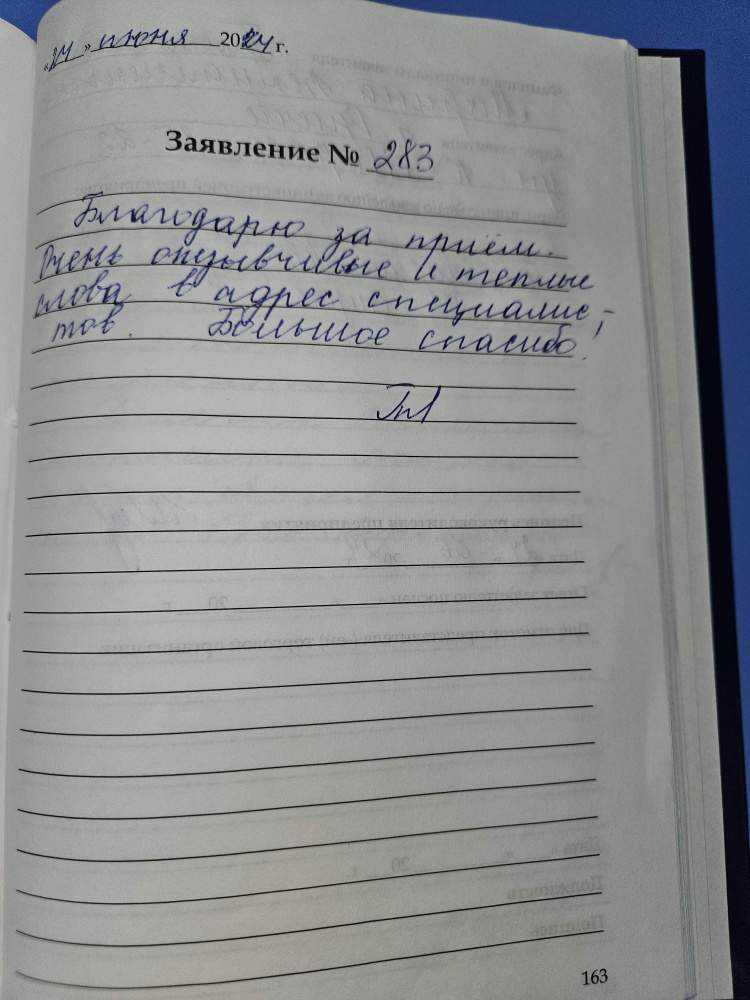 «24» июня 2024 г.
Заявление № 283
Благодарю за приём.
Очень отзывчивые и теплые
слова в адрес специалис-
тов. Большое спасибо!
163